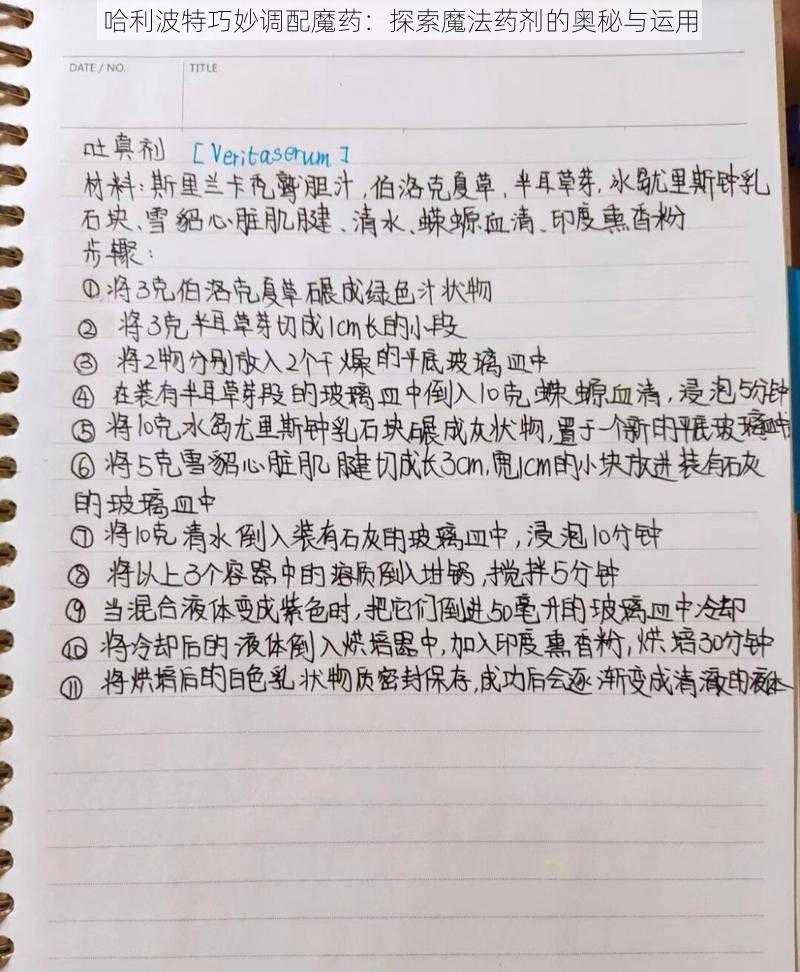 哈利波特巧妙调配魔药：探索魔法药剂的奥秘与运用
DATE / NO.
TITLE
吐真剂 [Veritaserum]
材料：斯里兰卡秃鹫胆汁，伯洛克夏草，半耳草芽，冰岛尤里斯钟乳
石块、雪貂心脏肌腱、清水、蝾螈血清、印度熏香粉
步骤：
①将3克伯洛克夏草碾成绿色汁状物
② 将3克半耳草芽切成1cm长的小段
③ 将2物分别放入2个干燥的平底玻璃皿中
④ 在装有半耳草芽段的玻璃皿中倒入10克蝾螈血清，浸泡5分钟
⑤ 将10克冰岛尤里斯钟乳石块碾成灰状物，置于一个新的平底玻璃皿中
⑥ 将5克雪貂心脏肌腱切成长3cm，宽1cm的小块放进装有石灰
的玻璃皿中
⑦ 将10克清水倒入装有石灰的玻璃皿中，浸泡10分钟
⑧ 将以上3个容器中的溶质倒入坩锅，搅拌5分钟
⑨ 当混合液体变成紫色时，把它们倒进50毫升的玻璃皿中冷却
⑩ 将冷却后的液体倒入烘培器中，加入印度熏香粉，烘培30分钟
⑪ 将烘培后的白色乳状物质密封保存，成功后会逐渐变成清澈的液体